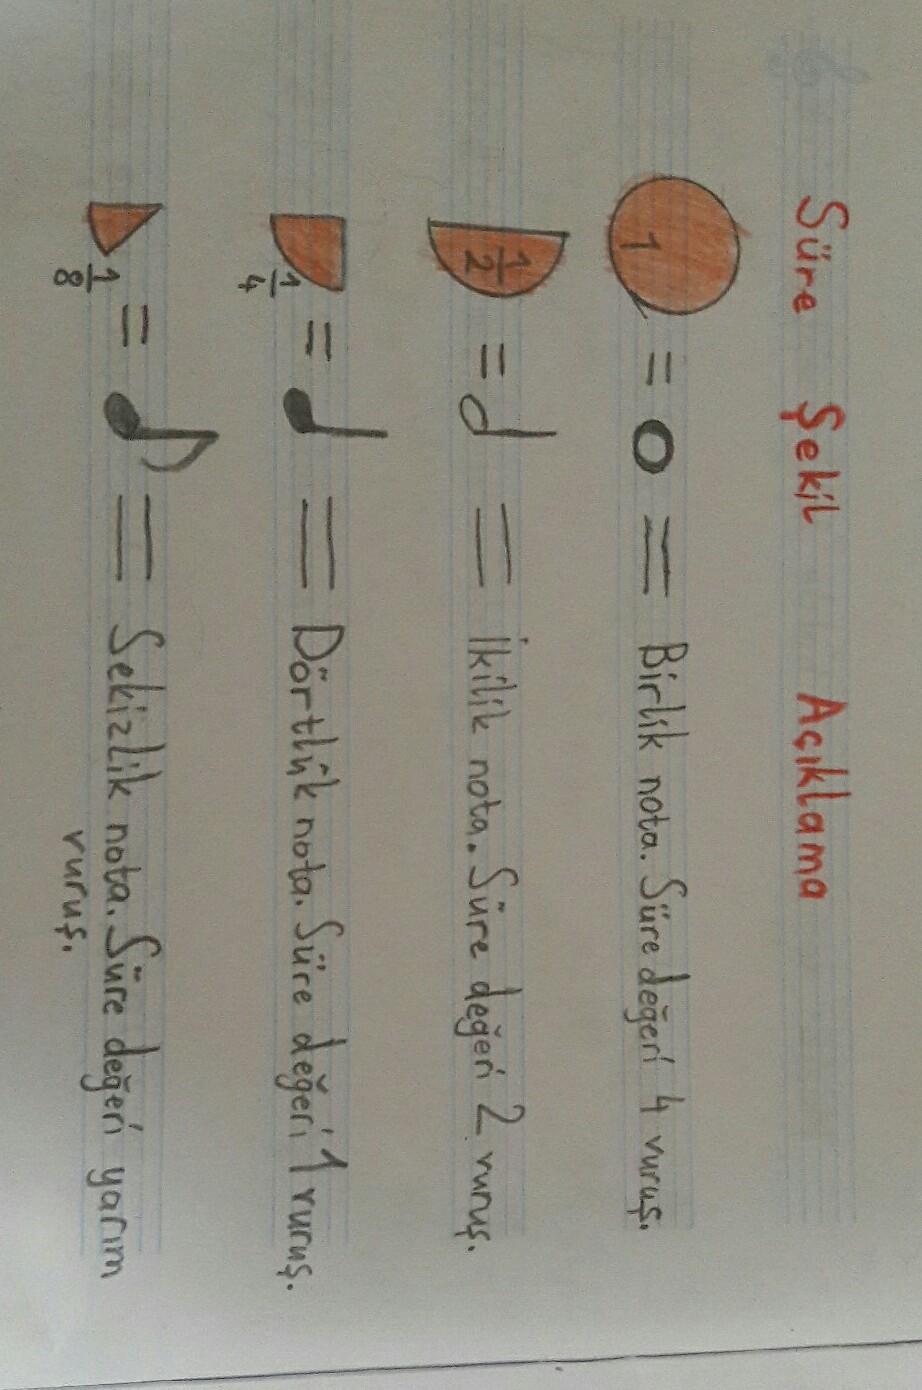 Süre Şekil Açıklama
1 = = Birlik nota. Süre değeri 4 vuruş.
1/2 = = İkilik nota. Süre değeri 2 vuruş.
1/4 = = Dörtlük nota. Süre değeri 1 vuruş.
1/8 = = Sekizlik nota. Süre değeri yarım
vuruş.